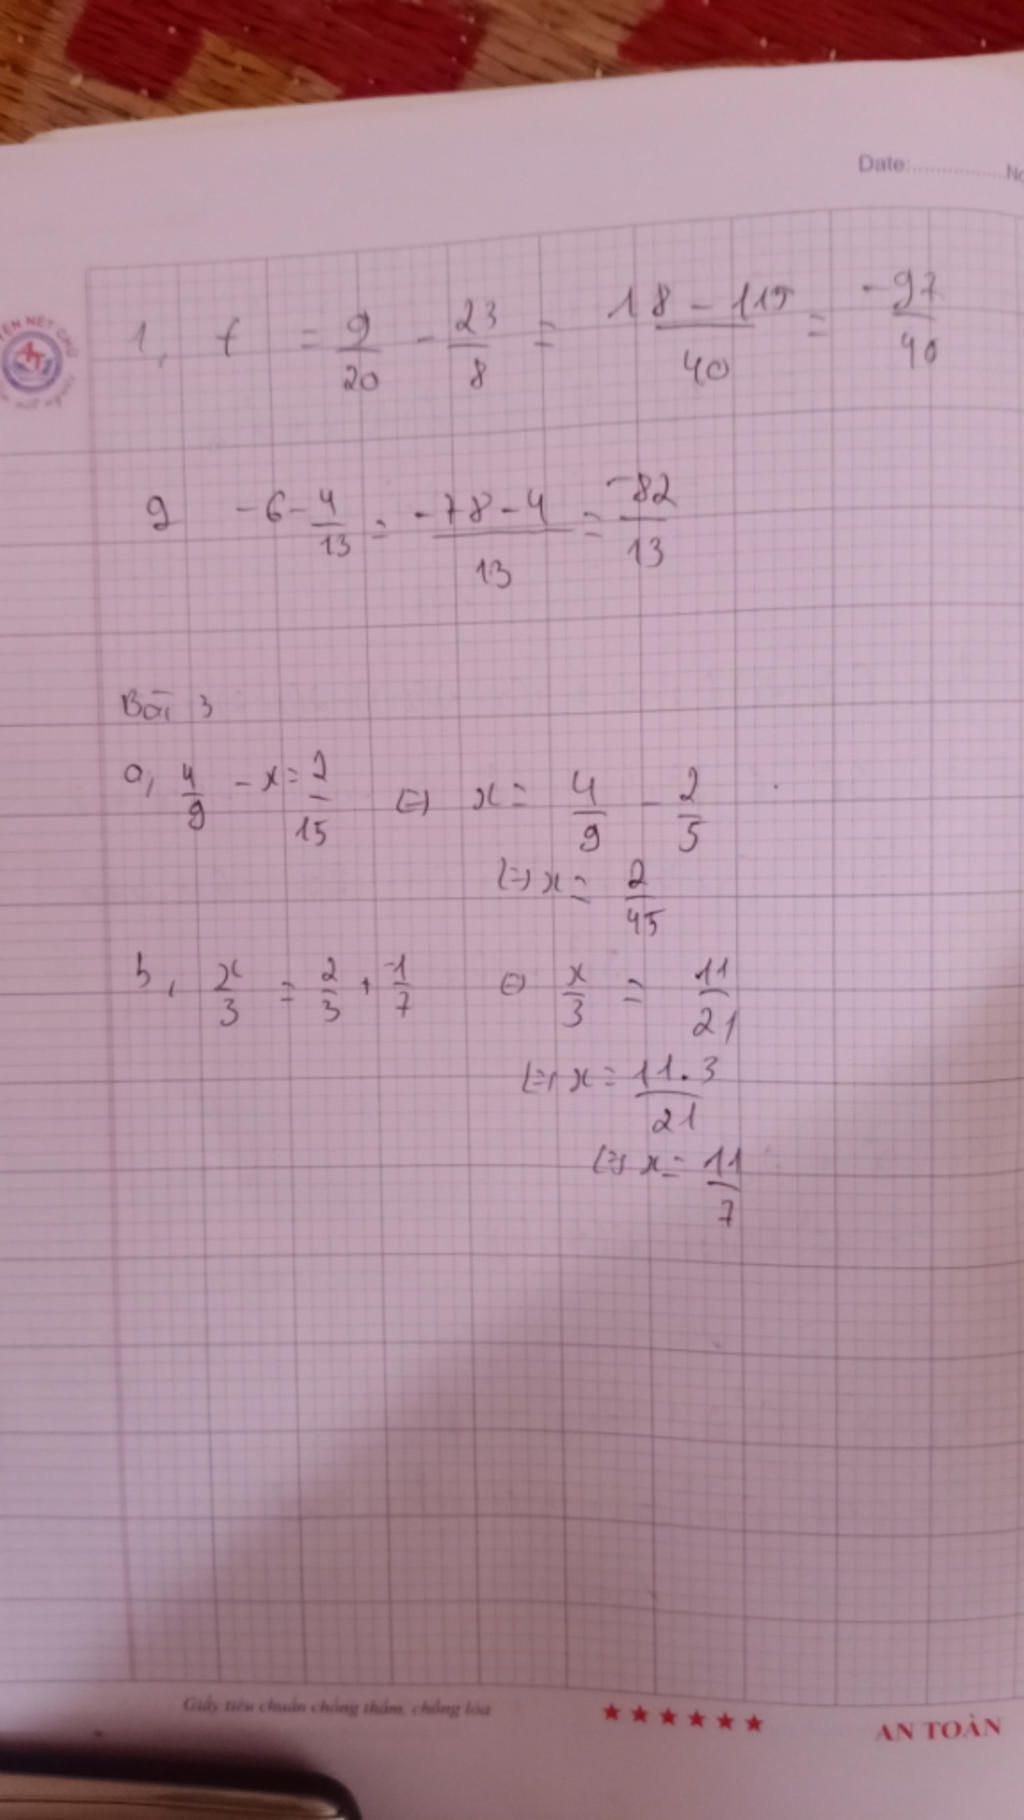 Date:................No
1, f = 9/20 - 23/8 = 18 - 115/40 = -97/40
g -6 - 4/13 = -78 - 4/13 = -82/13
Bài 3
a, 4/9 - x = 2/15 (=) x = 4/9 - 2/5
(=) x = 2/45
b, x/3 = 2/3 + -1/7 (=) x/3 = 11/21
(=) x = 11.3/21
(=) x = 11/7
Giấy tiêu chuẩn chống thấm, chống lóa
★★★★★★ AN TOÀN